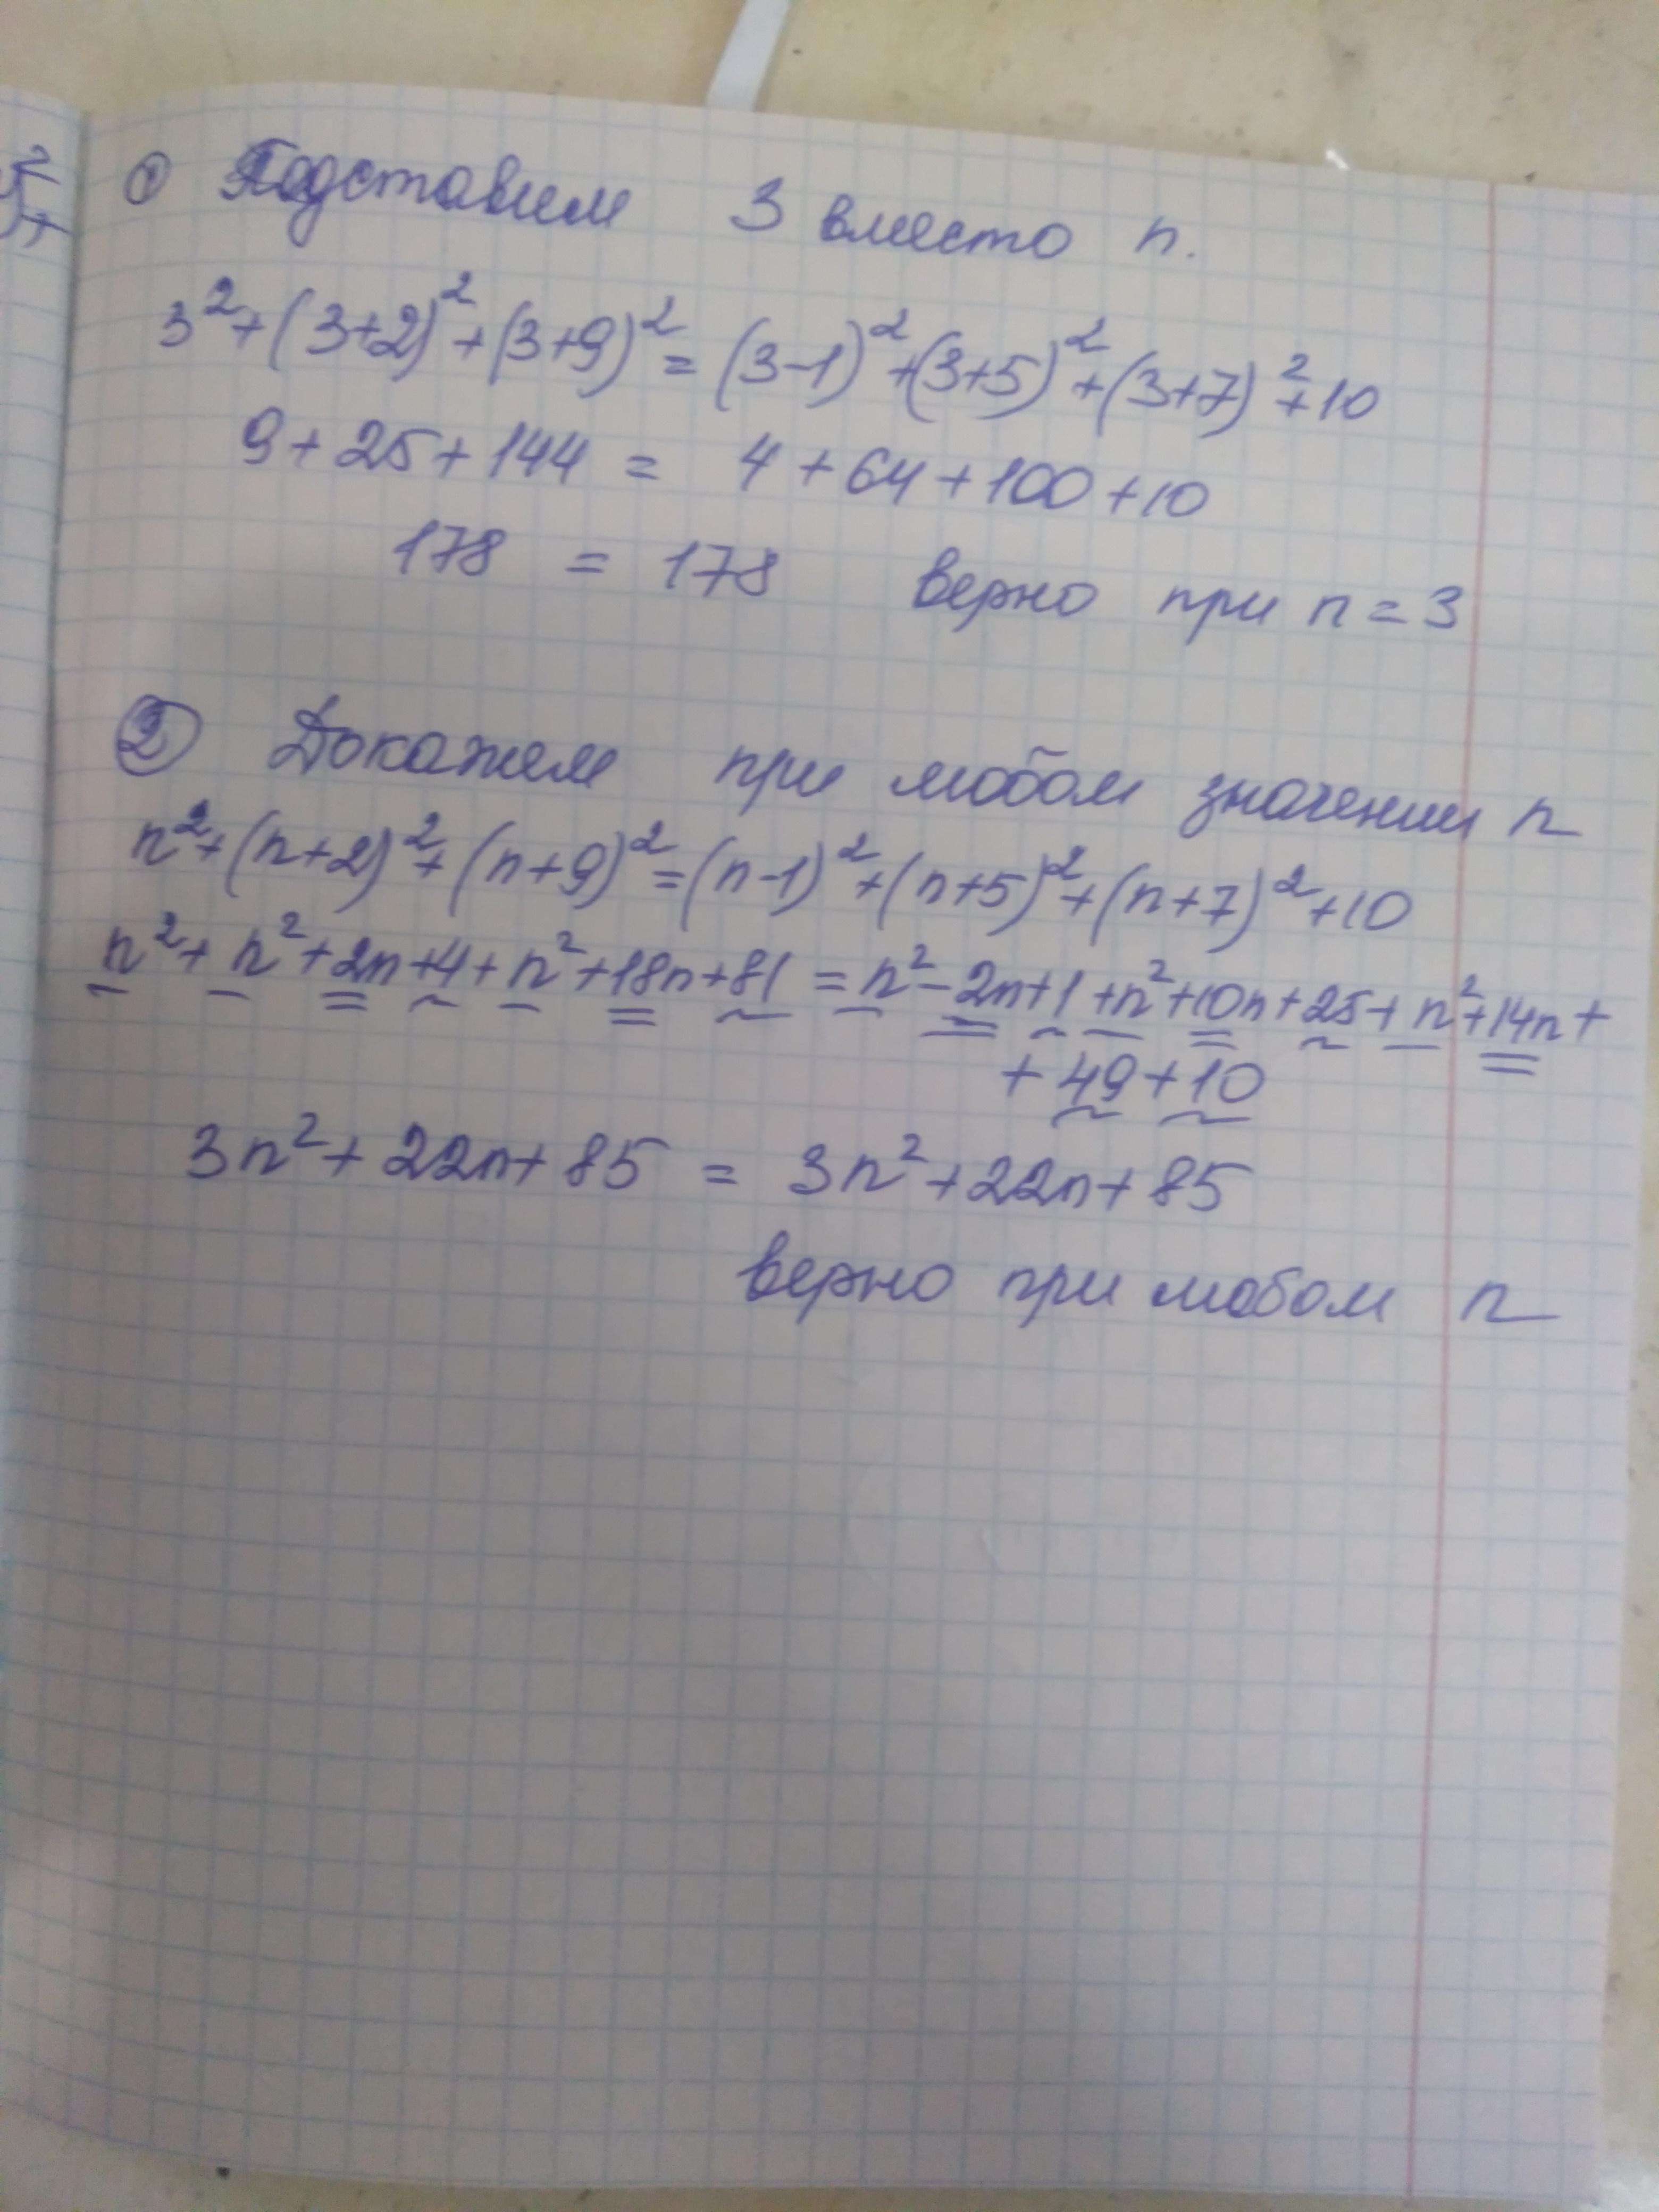 ① Подставим 3 вместо n.
3²+(3+2)²+(3+9)²=(3-1)²+(3+5)²+(3+7)²+10
9+25+144 = 4+64+100+10
178 = 178 верно при n=3
② Докажем при любом значении n
n²+(n+2)²+(n+9)²=(n-1)²+(n+5)²+(n+7)²+10
n²+n²+2n+4+n²+18n+81=n²-2n+1+n²+10n+25+n²+14n+
+49+10
3n²+22n+85 = 3n²+22n+85
верно при любом n